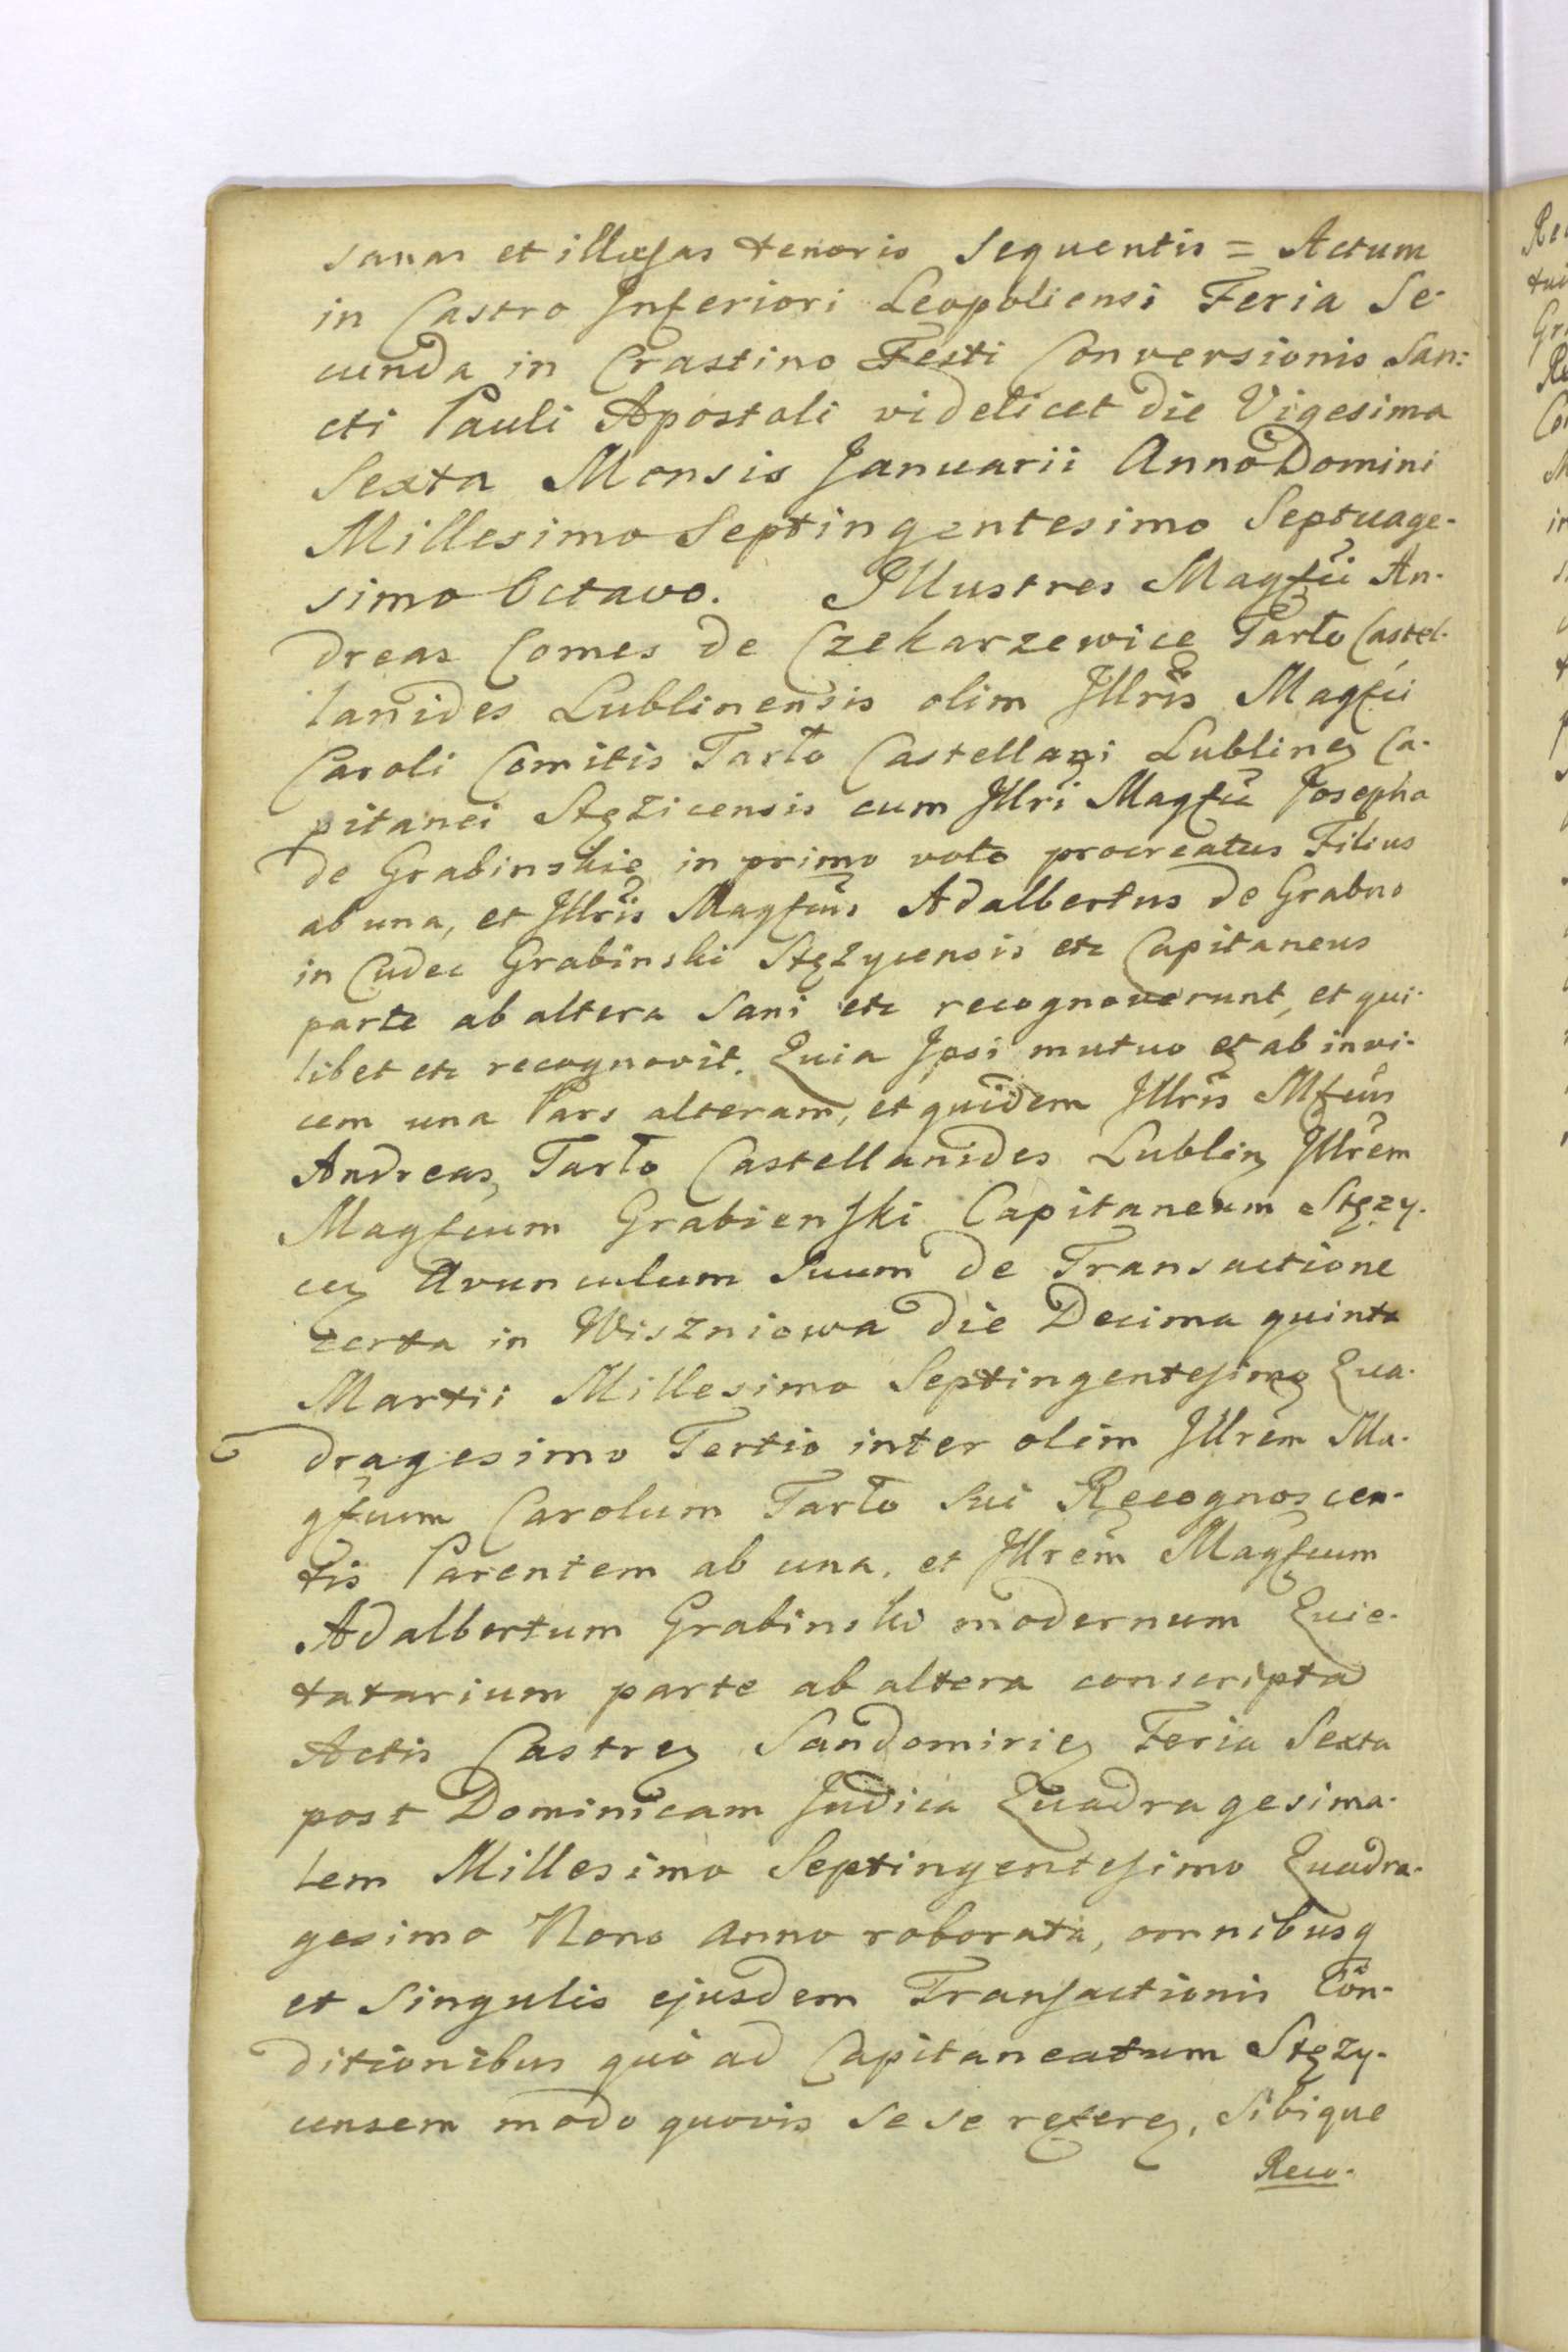 sanas et illæsas tenoris sequentis = Actum
in Castro Inferiori Leopoliensi Feria Se-
cunda in Crastino Festi Conversionis San:
cti Pauli Apostoli videlicet die Vigesima
Sexta Mensis Januarii Anno Domini
Millesimo Septingentesimo Septuage-
simo Octavo. Illustres Magfci An-
dreas Comes de Czekarzewice Tarło Castel-
lanides Lublinensis olim Illris Magfci
Caroli Comitis Tarło Castellani Lublinen Ca-
pitanei Stęzicensis cum Illri Magfca Josepha
de Grabinskie in primo voto procreatus Filius
ab una, et Illris Magfcus Adalbertus de Grabno
in Cudec Grabinski Stęzycensis etc Capitaneus
parte ab altera Sani etc recognoverunt, et qui-
libet etc recognovit. Quia Ipsi mutuo et ab invi-
cem una Pars alteram, et quidem Illris Mfcus
Andreas Tarło Castellanides Lublin Illrem
Magfcum Grabienski Capitaneum Stęzy-
cen Avunculum Suum de Transactione
certa in Wiszniowa die Decima quinta
Martii Millesimo Septingentesimo Qua-
dragesimo Tertio inter olim Illrem Ma-
gfcum Carolum Tarło Sui Recognoscen-
tis Parentem ab una, et Illrem Magfcum
Adalbertum Grabinski modernum Quie-
tatarium parte ab altera conscripta
Actis Castren Sandomirien Feria Sexta
post Dominicam Judica Quadragesima-
lem Millesimo Septingentesimo Quadra-
gesimo Nono Anno roborata, omnibusq
et Singulis ejusdem Transactionis Con-
ditionibus quo ad Capitaneatum Stęzy-
censem modo quovis se se referen, Sibique
Reco-